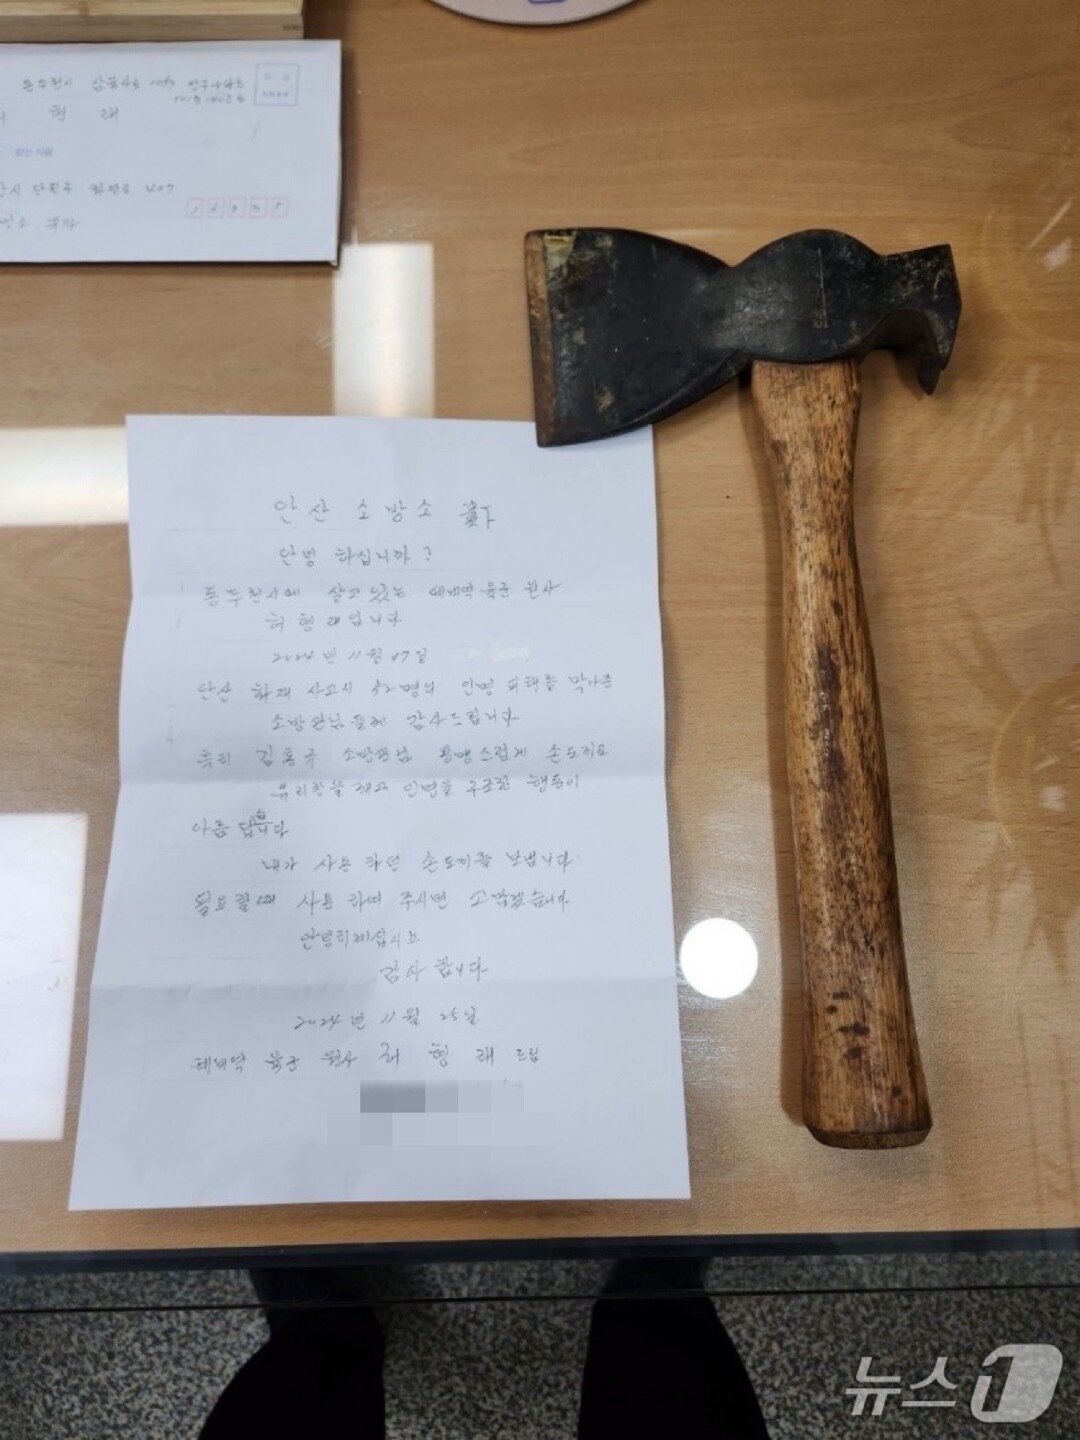 허 형 래
받는 사람
안산 소방소 貴下
안녕 하십니까?
동두천시에 살고 있는 예비역 육군 원사
허 형 래입니다
2024년 11월 17일
안산 화재 사고시 52명의 인명 피해를 막아준
소방관님들께 감사드립니다
특히 김홍국 소방관님 용맹스럽게 손도끼로
유리창을 깨고 인명을 구조한 행동이
아름답습니다
내가 사용 하던 손도끼를 보냅니다.
필요할때 사용 하여 주시면 고맙겠습니다
안녕히계십시오
감사 합니다
2024년 11월 25일
예비역 육군 원사 허 형 래 드림
뉴스1